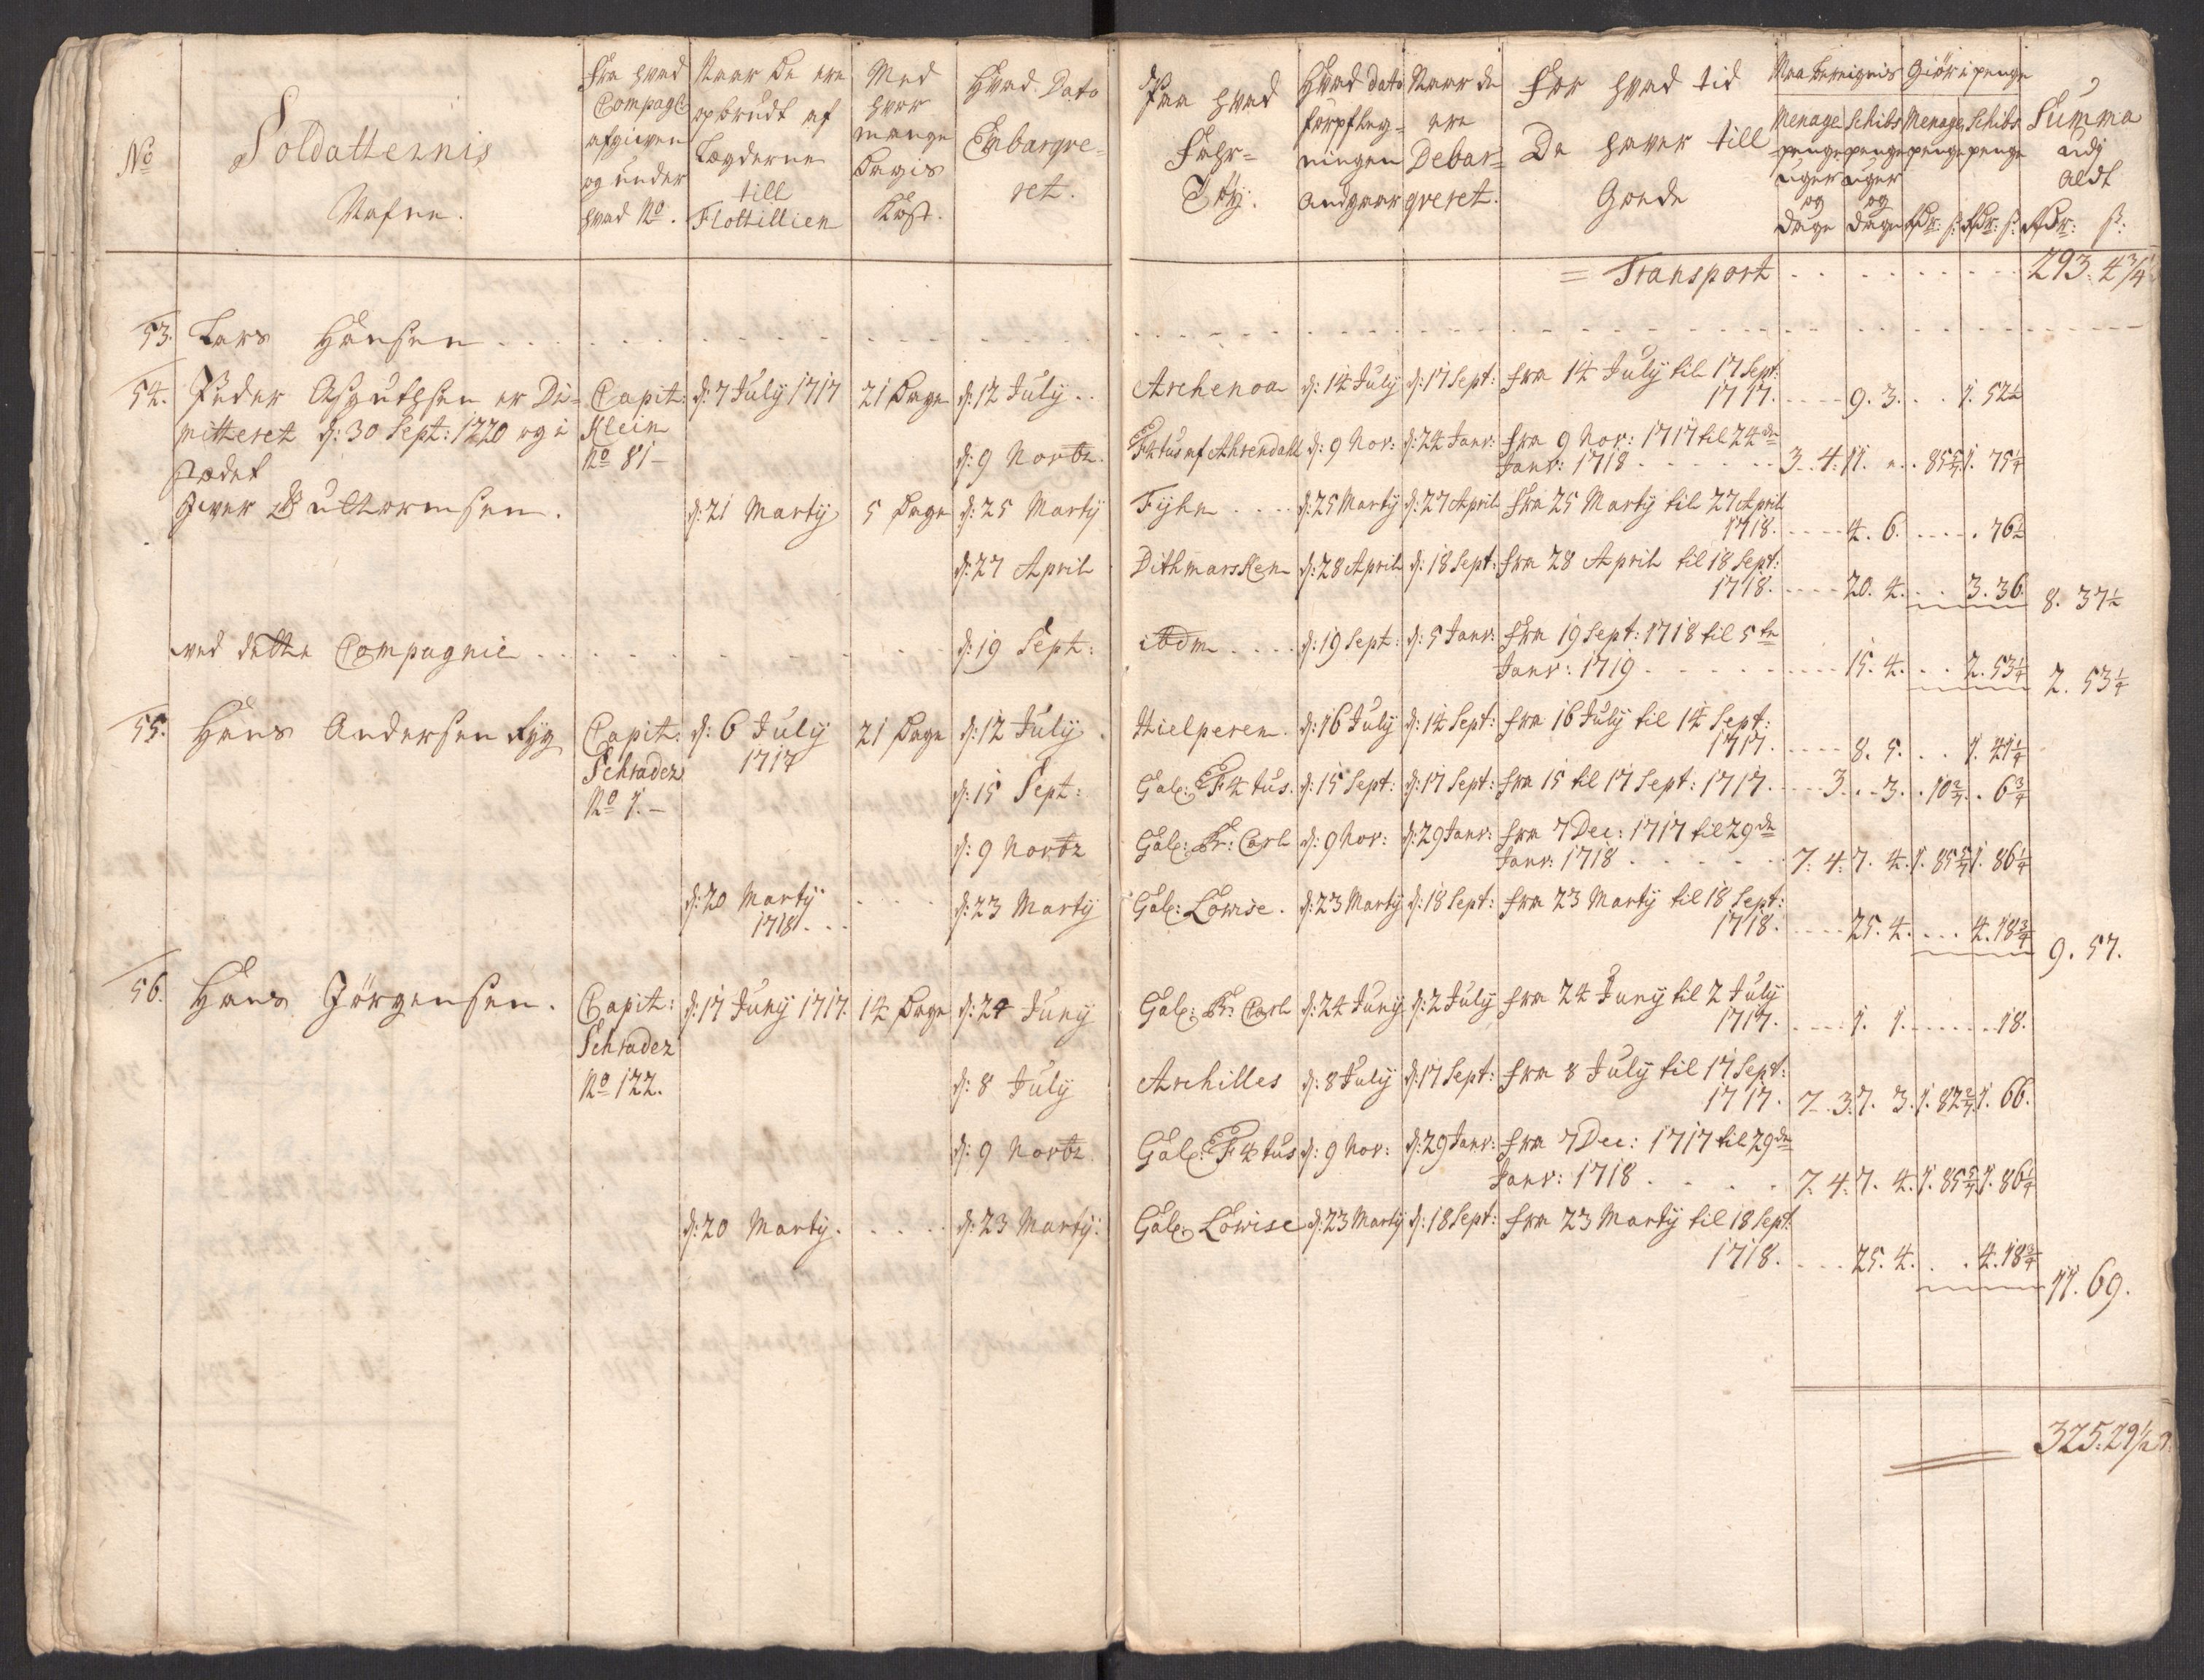 No
Soldatternis
Nafne.
Fra hvad
Compagl
afgiven
og under
hvad No.
Naar De ere
opbrudt af
Lægderne
till
Flottillien
Med
hvor
mange
Dagis
Kost.
Hvad Dato
Embarqve-
ret.
Paa hvad
Fahr-
Tøy.
Hvad dato
forpfleg-
ningen
andgaar
Naar de
ere
Debar-
qveret.
For hvad tid
De haver till
Gode
Maa bereignis
Giør i penge
Menage
penge
uger
og
dage
Schibs
penge
uger
og
dage
Menage
penge
Rdr: ß:
Schibs
penge
Rdr: ß:
Summa
udj
aldt
Rdr: ß:
= Transport . . . . . . . 293. 4 3/4
53. Lars Hansen . . . . . . . . . .
54. Peder Asguthsen er Di- Capit: d: 7 July 1717 21 Dage d: 12 July . . Archenoa d: 14 July d: 17 Sept: fra 14 July til 17 Sept:
1717. . . . 9. 3. . . 1. 52 1/2
mitteret d: 30 Sept: 1720 og i Klein
stædet No 81 - d: 9 Novbr. Effectus af Ahrendahl d: 9 Nov: d: 24 Janv: fra 9 Nov: 1717 til 24de
Janv: 1718 . . . . . 3. 4. 11. ". . 85 5/7. 1. 75 1/4
Iver Guttormsen. d: 21 Marty 5 Dage d: 25 Marty Fyhn . . . d: 25 Marty d: 27 April fra 25 Marty til 27 April
1718. . . . 4. 6. . . . . 76 1/2
d: 27 April Dithmarsken d: 28 April d: 18 Sept: fra 28 April til 18 Sept:
1718. . . . 20. 4. . . 3. 36. 8. 37 1/2
ved dette Compagnie . . . . . . d: 19 Sept: ibdm . . . d: 19 Sept: d: 5 Janv: fra 19 Sept: 1718 til 5te
Janv: 1719 . . . . . 15. 4. . . 2. 53 1/4 2. 53 1/4
55. Hans Andersen Ryg Capit: d: 6 July 21 Dage d: 12 July . Hielperen. d: 16 July d: 14 Sept: fra 16 July til 14 Sept:
Schrader 1717 1717. . . . 8. 5. . . 1. 41 1/4
No 1. - d: 15 Sept: Gal: Effectus. d: 15 Sept: d: 17 Sept: fra 15 til 17 Sept: 1717. . . . 3. . 3. . 10 2/7. . 6 3/4
d: 9 Novbr Gal: Pr: Carl d: 9 Nov: d: 29 Janv: fra 7 Dec: 1717 til 29de
Janv: 1718 . . . . . 7. 4. 7. 4. 1. 85 5/7 1. 86 1/4
d: 20 Marty . . . . d: 23 Marty Gal: Lowise. d: 23 Marty d: 18 Sept: fra 23 Marty til 18 Sept:
1718 . . . 1718. . . . 25. 4. . . . 4. 18 3/4 9. 57.
56. Hans Jörgensen. Capit: d: 17 Juny 1717. 14 Dage d: 24 Juny Gal: Pr: Carl d: 24 Juny d: 2 July fra 24 Juny til 2 July
Schrader 1717. . . . 1. 1. . . . . . 18.
No 122. d: 8 July Archilles d: 8 July d: 17 Sept: fra 8 July til 17 Sept:
1717. 7. 3. 7. 3. 1. 82 2/7 1. 66.
d: 9 Novbr. Gal: Effectus d: 9 Nov: d: 29 Janv: fra 7 Dec: 1717 til 29de
Janv: 1718 . . . . 7. 4. 7. 4. 1. 85 5/7. 1. 86 1/4
d: 20 Marty . . . . d: 23 Marty: Gal: Lowise d: 23 Marty d: 18 Sept: fra 23 Marty til 18 Sept.
1718. . . . 25. 4. . . 4. 18 3/4 11. 69.
325. 29 1/2